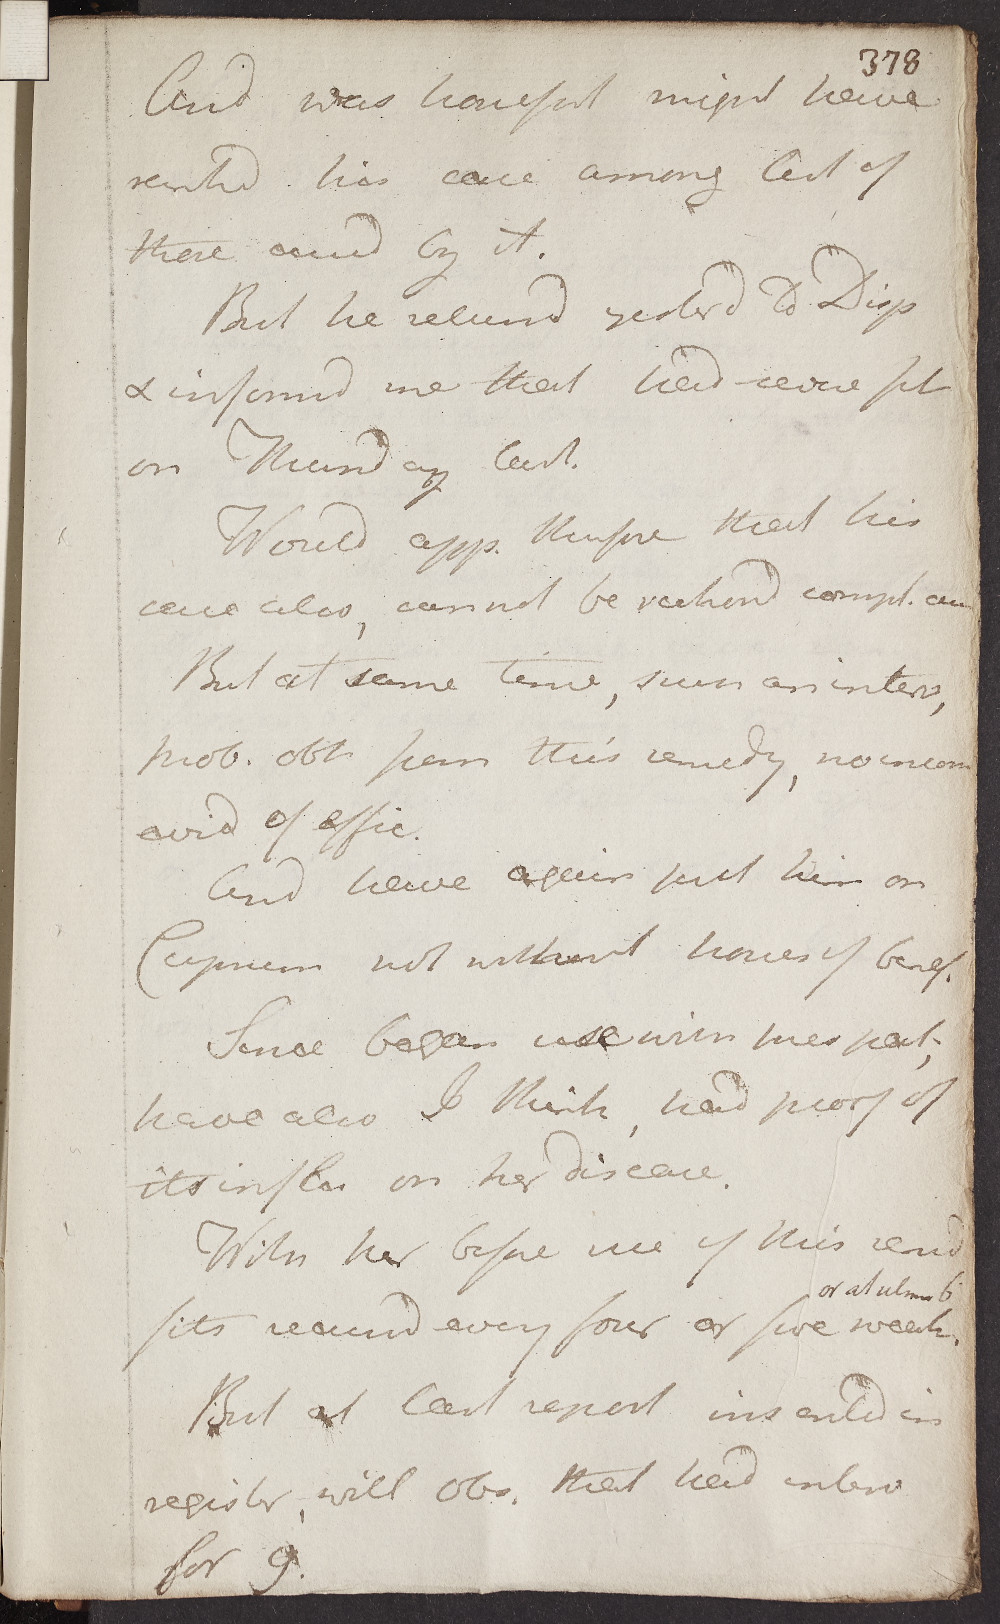 378
And was hopeful might have
rankd his case among list of
those cured by it.
But he returnd yesterd to Disp
& informd me that had sevre fit
on Thursday last.
Would app. therfore that his
case also, cannot be reckond compl. cure
But at same time, such an interv,
prob. obt from this remedy, no incon
evid of effic.
And have again put him on
Cuprum not without hopes of benef.
Since began use with this pat,
have also I think, had proof of
its influ on her disease.
With her before use of this remd
or at utmost 6
fits recurrd every four or five weeks.
But at last report inserted in
register, will obs. that had interv
for 9.